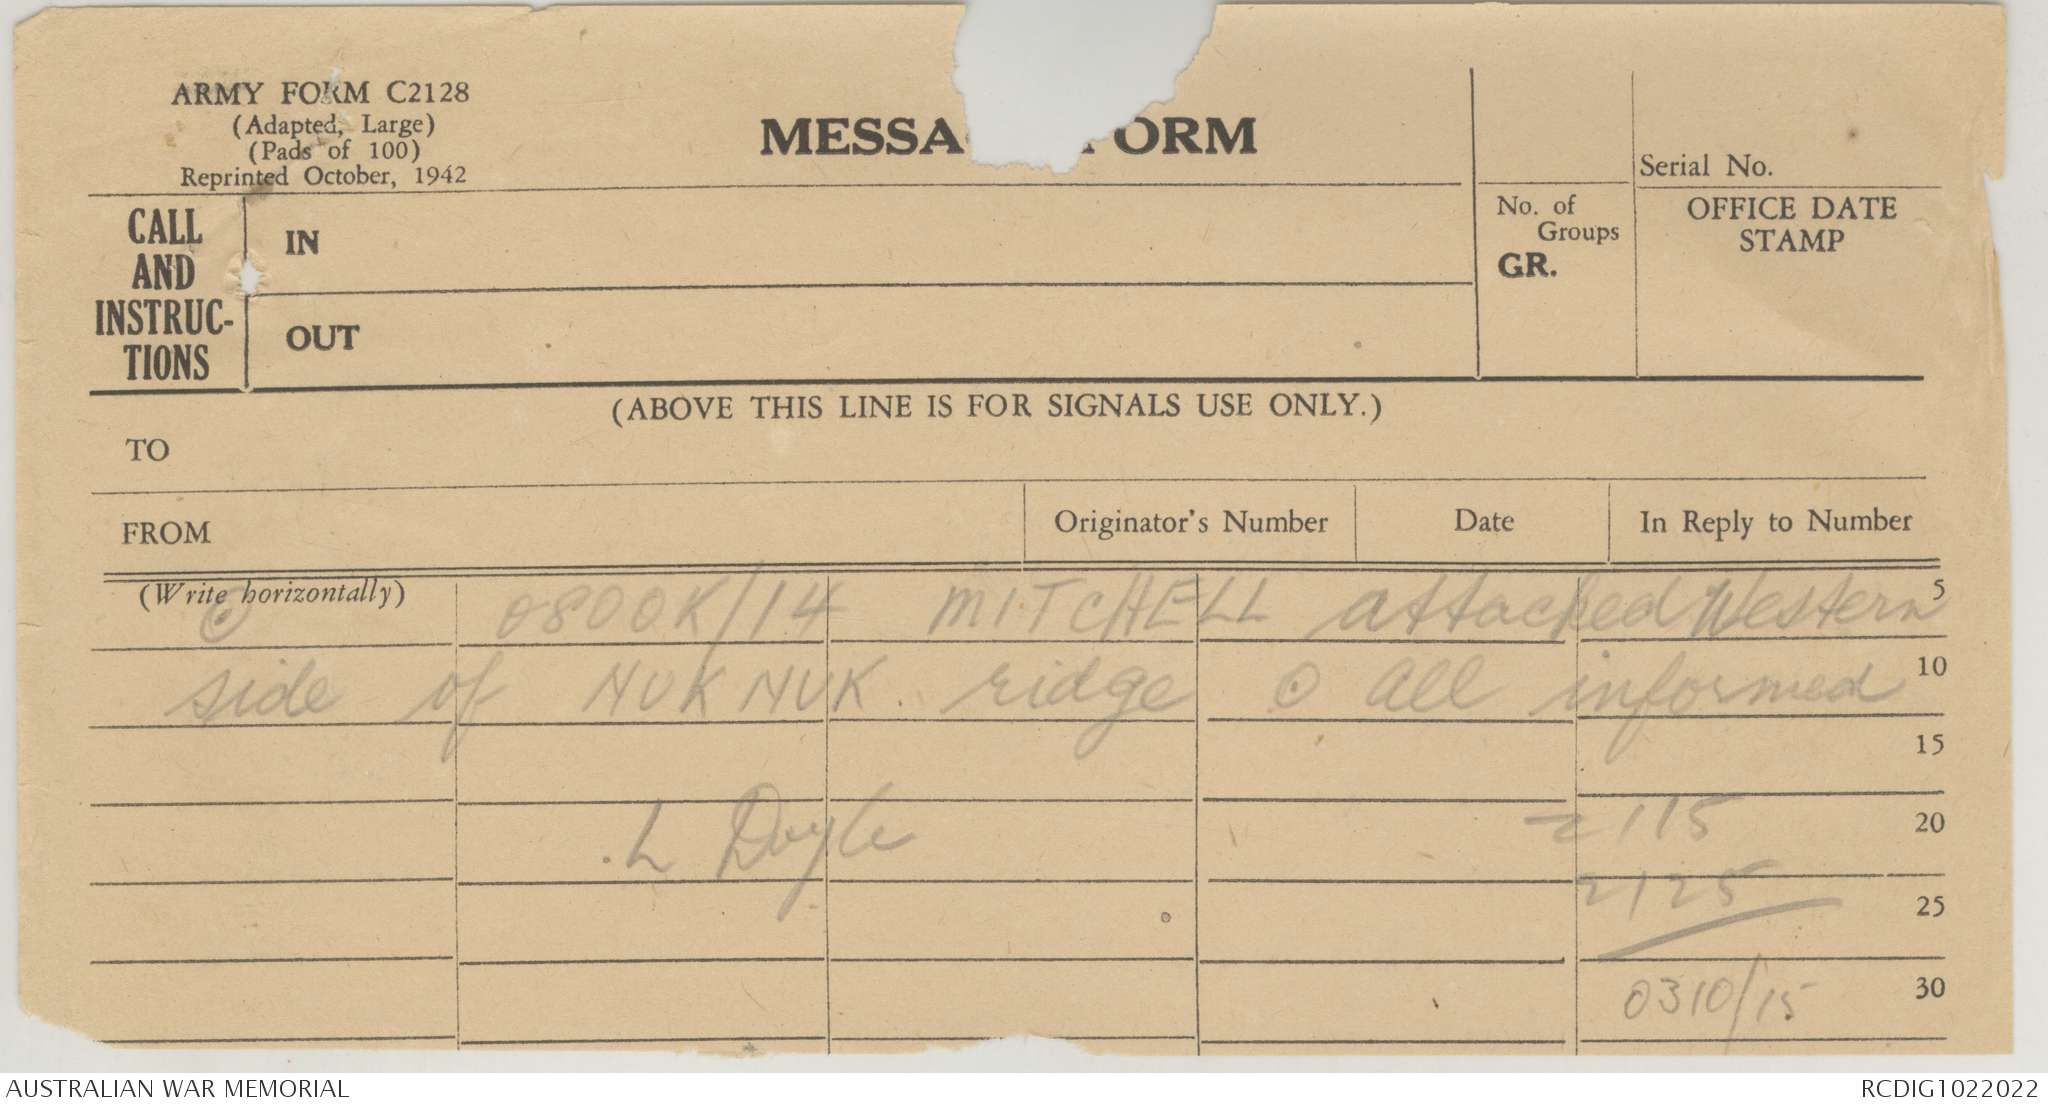 ARMY FORM C2128
(Adapted, Large)
(Pads of 100)
Reprinted October, 1942
MESSA ORM
Serial No.
No. of Groups
GR.
OFFICE DATE
STAMP
CALL
AND
INSTRUC-
TIONS
IN
OUT
(ABOVE THIS LINE IS FOR SIGNALS USE ONLY.)
TO
FROM
Originator's Number
Date
In Reply to Number
(Write horizontally)
0800K/14 MITCHELL attacked Western 5
side of NUKNUK ridge ⊙ all informed 10
15
L Doyle
2115 20
2125 25
0310/15 30
AUSTRALIAN WAR MEMORIAL
RCDIG1022022